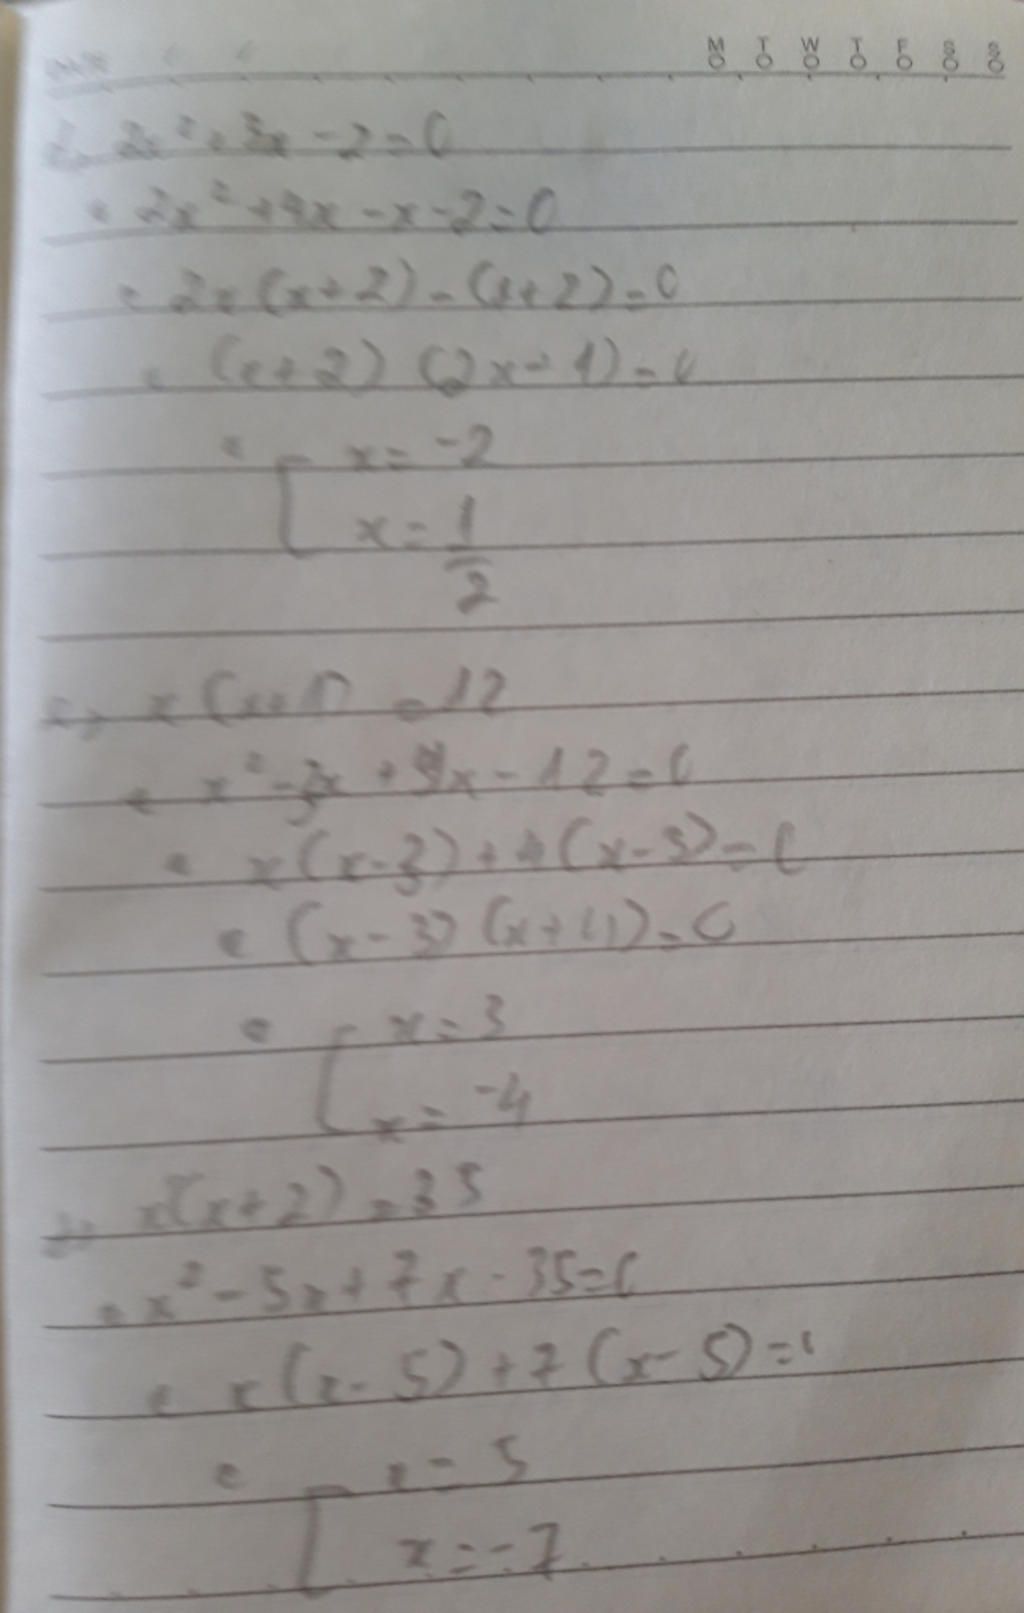 M T W T F S S
2x² + 3x - 2 = 0
2x² + 4x - x - 2 = 0
2x (x + 2) - (x + 2) = 0
(x + 2) (2x - 1) = 0
x = -2
x = 1/2
x (x+1) = 12
x² - 3x + 4x - 12 = 0
x (x - 3) + 4 (x - 3) = 0
(x - 3) (x + 4) = 0
x = 3
x = -4
x (x + 2) = 35
x² - 5x + 7x - 35 = 0
x (x - 5) + 7 (x - 5) = 0
x = 5
x = -7